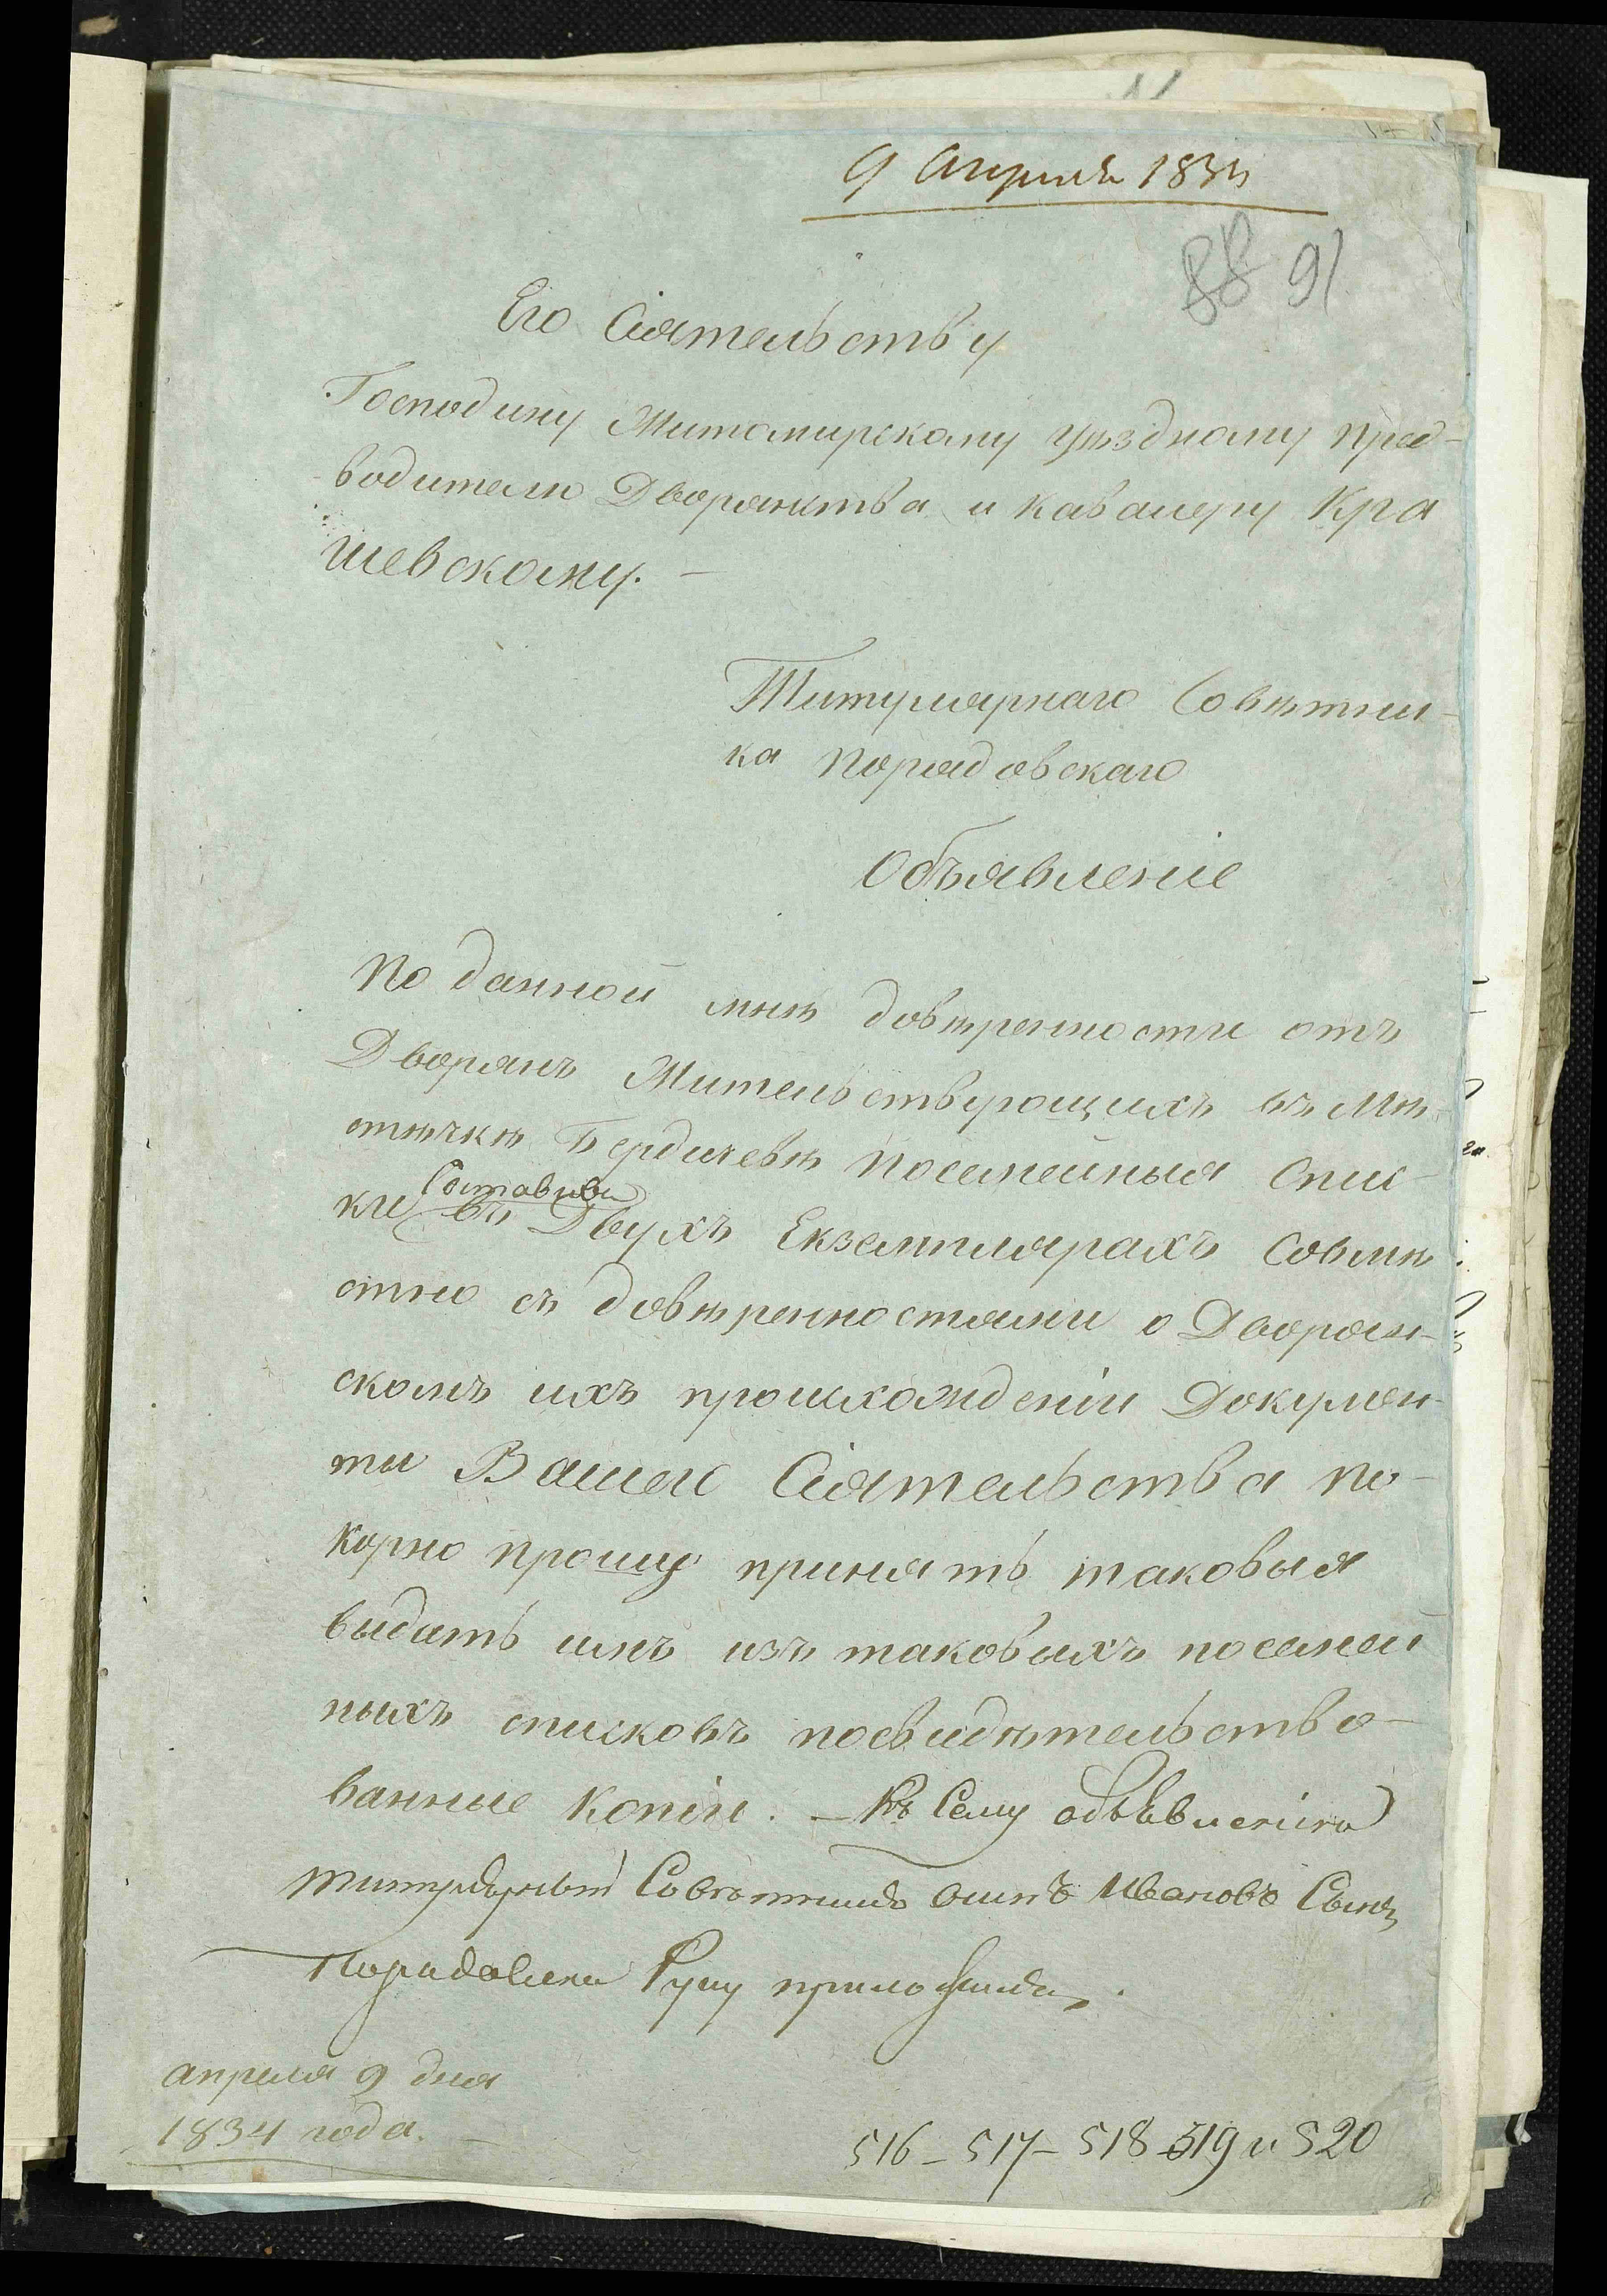 9 Апреля 1834
88 91
Его Сіятельству
Господину Житомирскому уѣздному пред-
водителю Дворянства и кавалеру Кра
шевскому. —
Титулярнаго Совѣтни-
ка Порадовскаго
Объявленіе
По данной мнѣ довѣренности отъ
Дворянъ Жительствующихъ въ Мѣ-
стѣчкѣ Бердичевѣ посемейныя Спис-
Составивъ
ки въ Двухъ Екземплярахъ Совмѣ
стно съ довѣренностями о Дворян-
скомъ ихъ происхожденіи Докумен-
ти Вашего Сіятельства по-
корно прошу принять таковыя
выдать имъ изъ таковыхъ посемей
ныхъ списковъ посвидѣтельство-
ванные копіи. — Къ Сему объявленію
титулярный Совѣтникъ Ивановъ Сынъ
Порадовски Руку приложилъ.
апреля 9 дня
1834 года. —
516 - 517 - 518 - 519 и 520